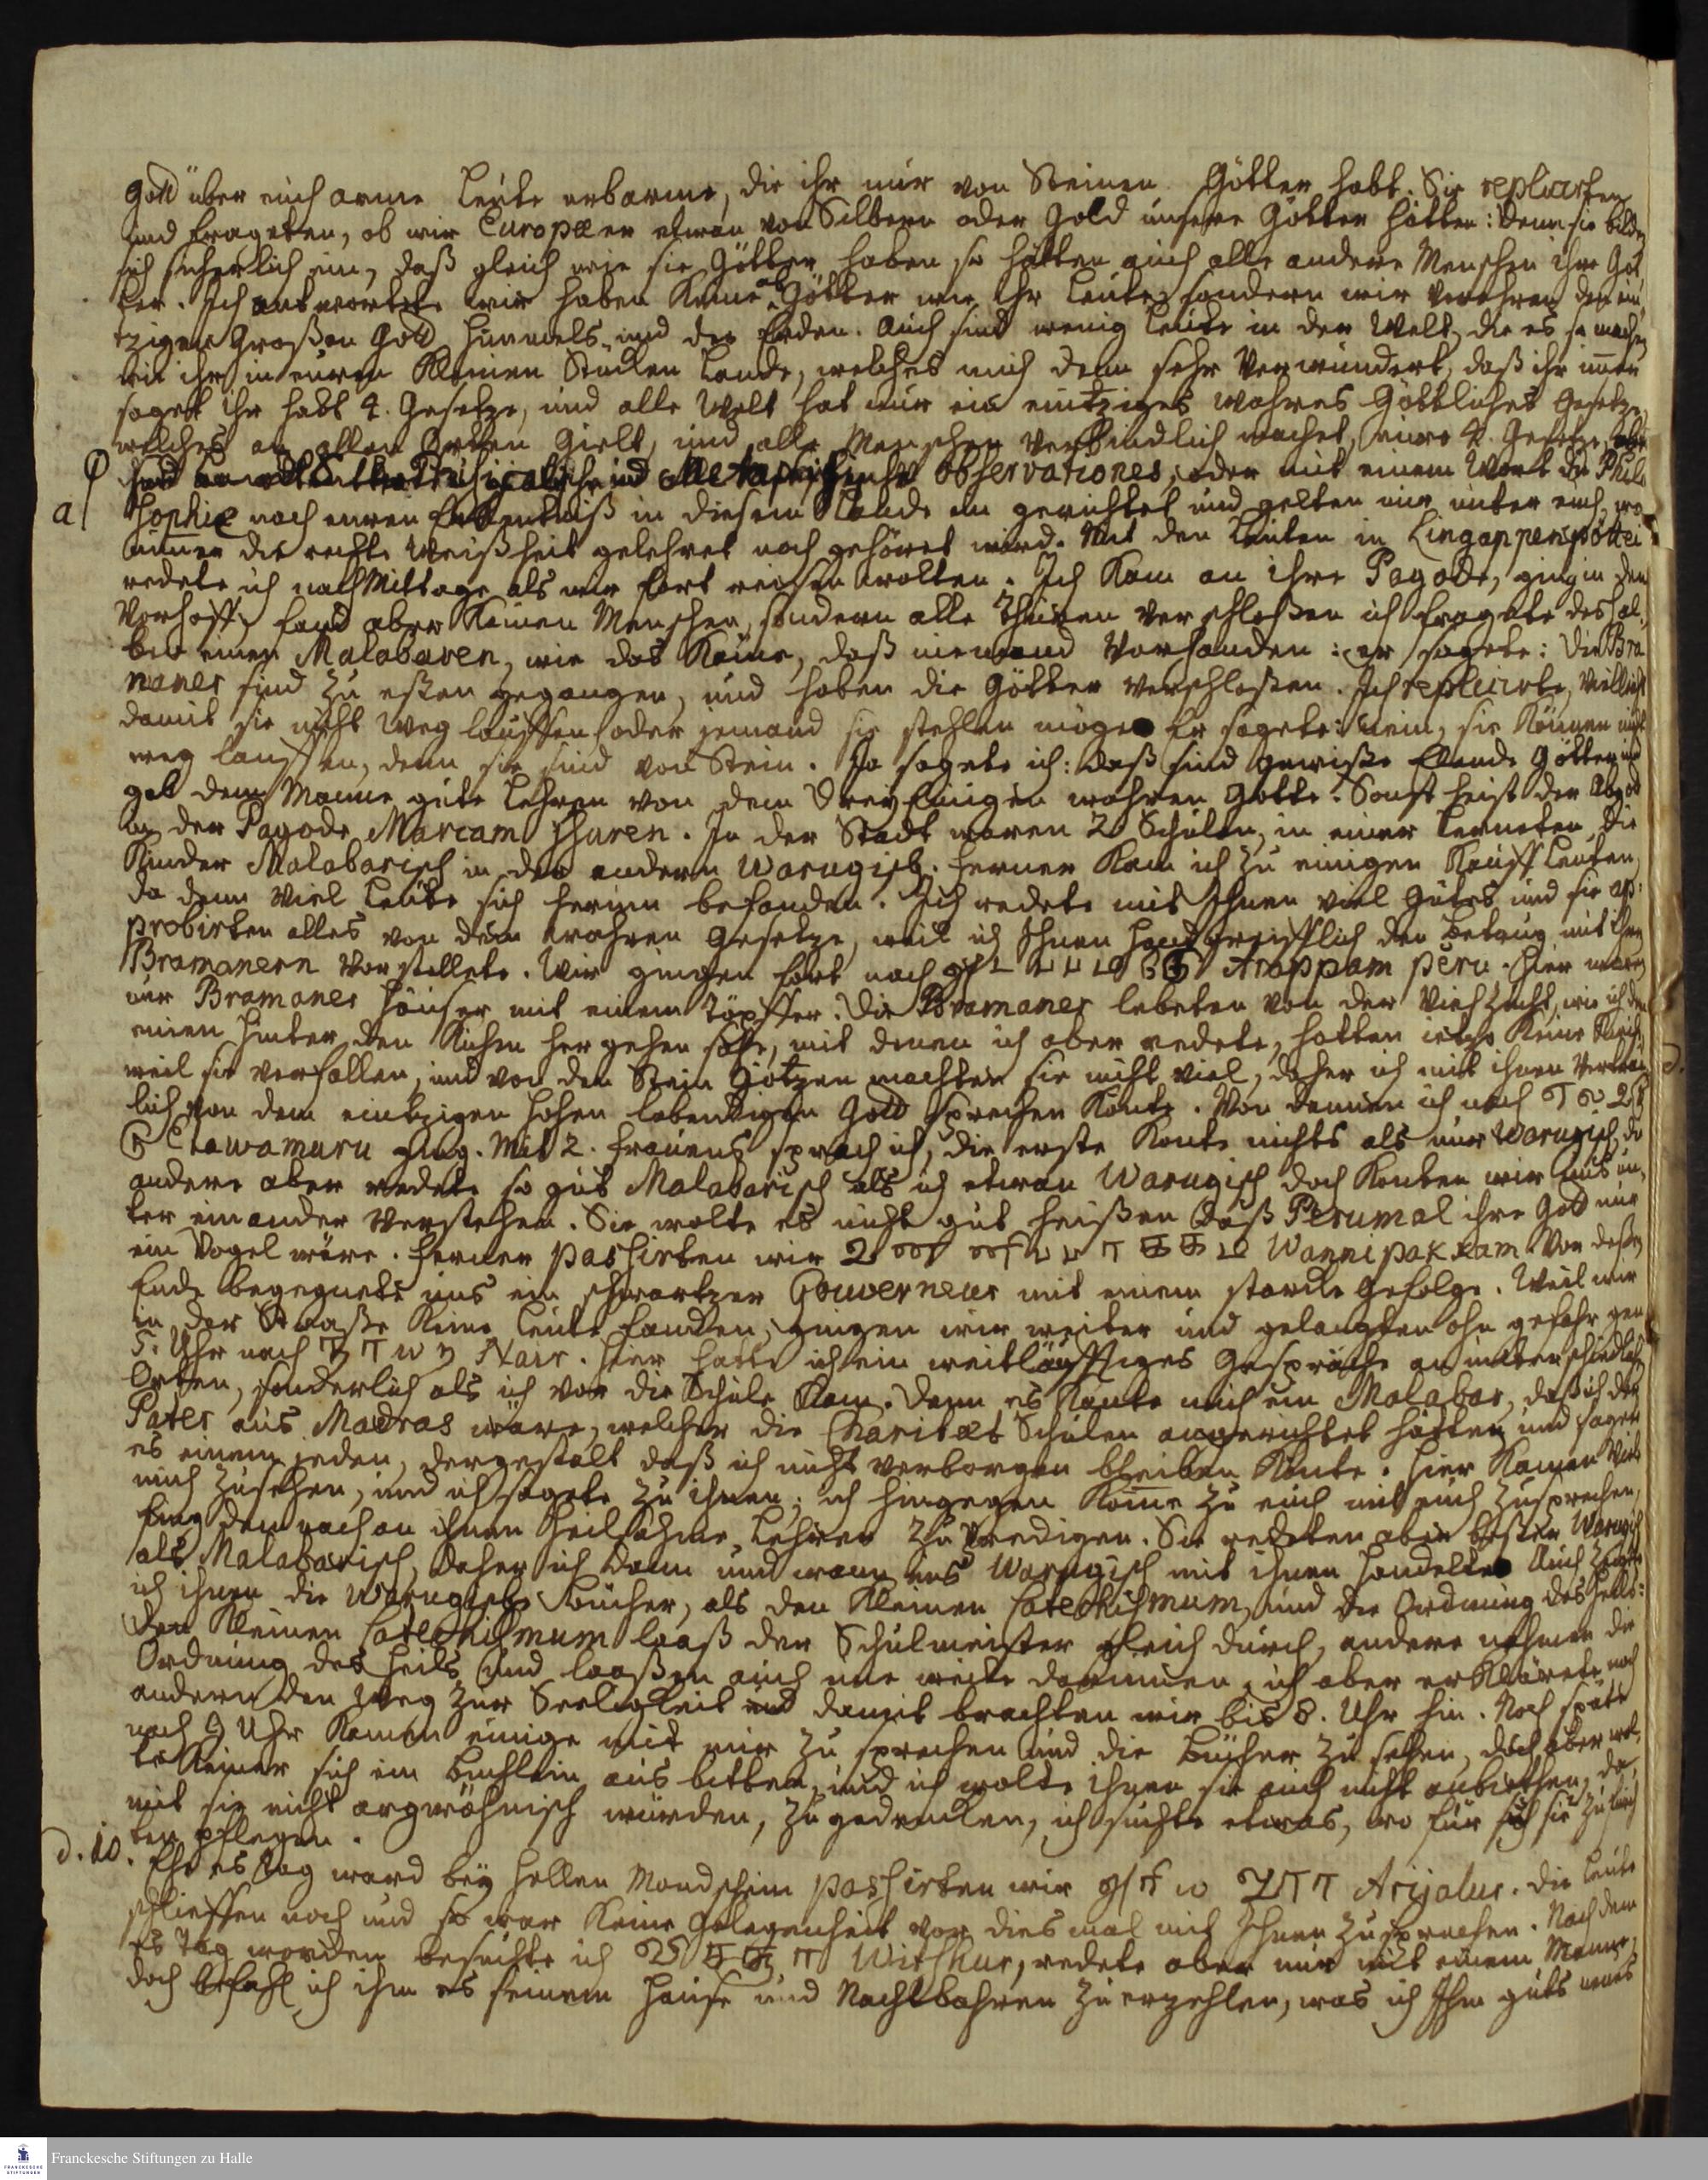 Gott über euch arme Leute erbarme, die ihr nur von Steinen Götter habt. Sie replicirten
und frageten, ob wir Europæer etwan von Silbern oder Gold unsere Götter hätten: denn sie bilden
sich sicherlich ein, daß gleich wie sie Götter haben so hätten auch alle andere Menschen ihre Göt
ter. Ich antwortete wir haben keine abGötter wie ihr Leute, sondern wir verehren den ein
tzigen Großen Gott Himmels und der Erden. Auch sind wenig Leute in der Welt, die es so machen
wie ihr in euren kleinen Stücken Lande, welches mich denn sehr verwundert, daß ihr immer
saget ihr habt 4. Gesetze, und alle Welt hat nur ein eintziges wahres Göttliches Gesetze,
welches an allen Orten gielt, und alle Menschen verbindlich machet, eure 4. Gesetze aber
sind Physicalische und Metaphysische Observationes, oder mit einem Wort die Philo
a sophie nach euren Erkentniß in diesem Lande ein gerichtet und gelten nur unter euch, wo
nimmer die rechte Weißheit gelehret noch gehöret wird. Mit den Leuten in Lingappenpöttei
redete ich nachMittage als wir fort reisen wolten. Ich kam an ihre Pagode, ging in den
Vorhoff, fand aber keinen Menschen, sondern alle Thüren verschloßen ich fragete deshal
ben einen Malabaren, wie das käme, daß niemand vorhanden: er sagete: Die Bra
maner sind zu eßen gegangen, und haben die Götter verschloßen. Ich replicirte, vielleicht
damit sie nicht weg lauffen oder jemand sie stehlen möge. Er sagete: nein, sie können nicht
weg lauffen, denn sie sind von Stein. Ja sagete ich: daß sind gewiße Elende Götter und
gab dem Manne gute Lehren von dem DreyEinigen wahren Gotte. Sonst heist der Abgott
in der Pagode Marcam Jsuren. In der Stadt waren 2 Schulen, in einer lerneten die
Kinder Malabarisch in der andern Warugisch. Ferner kam ich zu einigen Kauff Leuten,
da denn viel Leute sich herum befanden. Ich redete mit Ihnen viel gutes und sie ap:
probirten alles von dem wahren Gesetze, weil ich Ihnen Handgreifflich den Betrug mit ihren
Bramanern vorstellete. Wir gingen fort nach Arappam pèru. Hier waren
nur Bramaner Häuser mit einem Töpffer. Die Bramaner lebeten von der Viehzucht, wie ich den
einen hinter den Kühen her gehen sahe, mit denen ich aber redete, hatten ietzo keine Kirche,
weil sie verfallen, und von den Stein Götzen machten sie nicht viel, daher ich mit ihnen vertrau
lich von dem eintzigen hohen lebendigen Gott sprechen konte. Von dannen ich nach
Rawamuru ging. Mit 2. Frauens sprach ich, die erste konte nichts als nur Warugisch, die
andere aber redete so gut Malabarisch als ich etwan Warugisch doch konten wir uns un
ter einander verstehen. Sie wolte es nicht gut heißen daß Perumal ihre Gott nur
ein Vogel wäre. Ferner passirten wir Wannipakkam. Von deßen
Ende begegnete uns ein schwartzer Gouverneur mit einem starcke Gefolge. Weil wir
in der Straaße keine Leute fanden, gingen wir weiter und gelangten ohn gefehr gen
5. Uhr nach Nair. Hier hatte ich ein weitläufftiges Gespräche an unterschiedlichen
Orten, sonderlich als ich vor die Schule kam. Denn es kante mich ein Malabar, daß ich der
Pater aus Madras wäre, welcher die Charitæt Schulen angerichtet hätte, und sagete
es einem jeden, dergestalt daß ich nicht verborgen bleiben konte. Hier kamen viele
mich zusehen, und ich sagete zu ihnen: ich hingegen komme zu euch mit euch zusprechen,
fing dennach an ihnen Heilsahme Lehren zu Predigen. Sie redeten aber beßer Warugisch
als Malabarisch, daher ich dann und wann ins Warugisch mit ihnen handelte. Auch zeigte
ich ihnen die Warugische Bücher, als den kleinen Catechismum, und die Ordnung des Heils:
Den kleinen Catechismum laaß der Schulmeister gleich durch, andere nahmen die
Ordnung des Heils und laaßen auch eine weile darinnen, ich aber erklärete noch
andern den Weg zur Seeligkeit und damit brachten wir bis 8. Uhr hin. Noch späte
nach 9 Uhr kamen einige mit mir zu sprechen und die Bücher zu sehen, doch aber wol
te keiner sich ein Buchlein aus bitten, und ich wolte ihnen sie auch nicht anbiethen, da
mit sie nicht argwöhnisch würden, zu gedencken, ich suchte etwas, wo für sich sie zu fürch
ten pflegen.
d. 10. Ehe es Tag ward bey hellen Mondschein passirten wir Arijalur. Die Leute
schlieffen noch und so war keine Gelegenheit vor dies mal mich Ihnen zusprechen. Nach dem
es Tag worden besuchte ich Witshur, redete aber nur mit einem Manne,
doch befahl ich ihm es seinem Hause und Nachtbahren zu erzehlen, was ich Ihm guts neues
Franckesche Stiftungen zu Halle